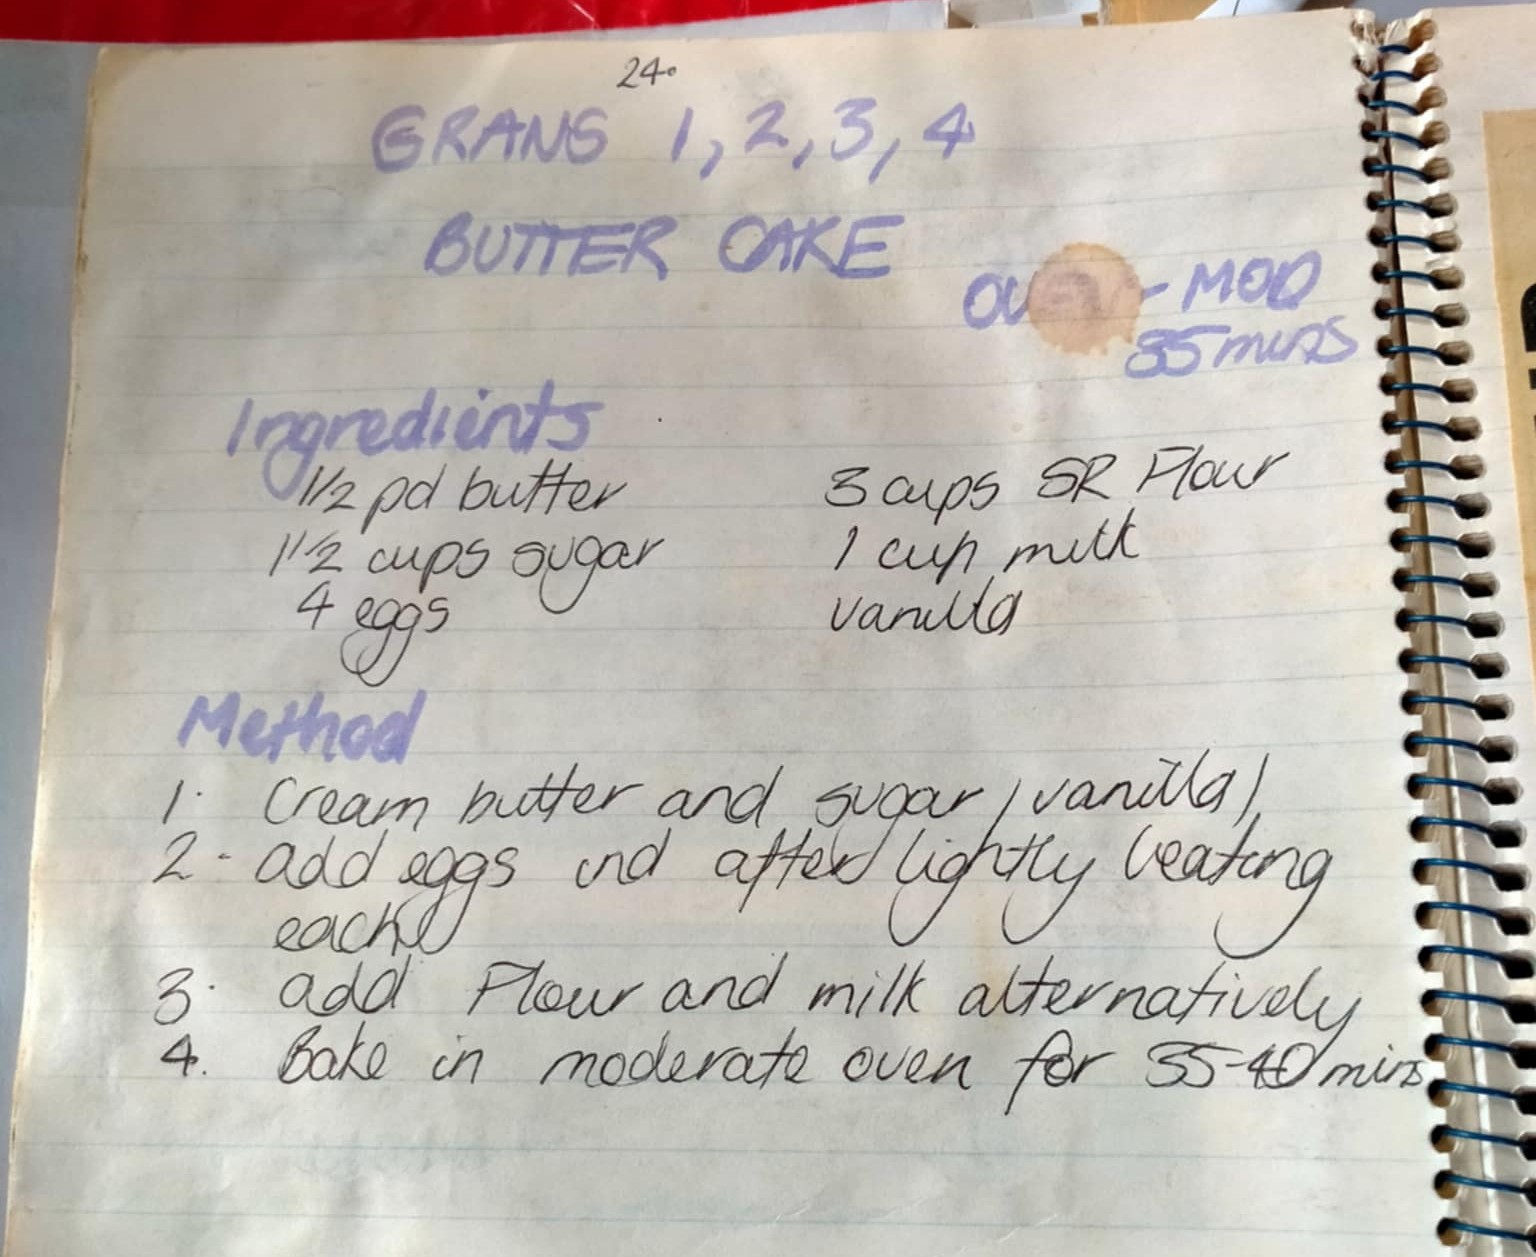 24.
GRANS 1, 2, 3, 4
BUTTER CAKE
OVEN - MOD
35 mins
Ingredients
1/2 pd butter 3 cups SR Flour
1 1/2 cups sugar 1 cup milk
4 eggs vanilla
Method
1. Cream butter and sugar (vanilla)
2. add eggs ind after lightly beating
each
3. add Flour and milk alternatively
4. Bake in moderate oven for 35-40 mins